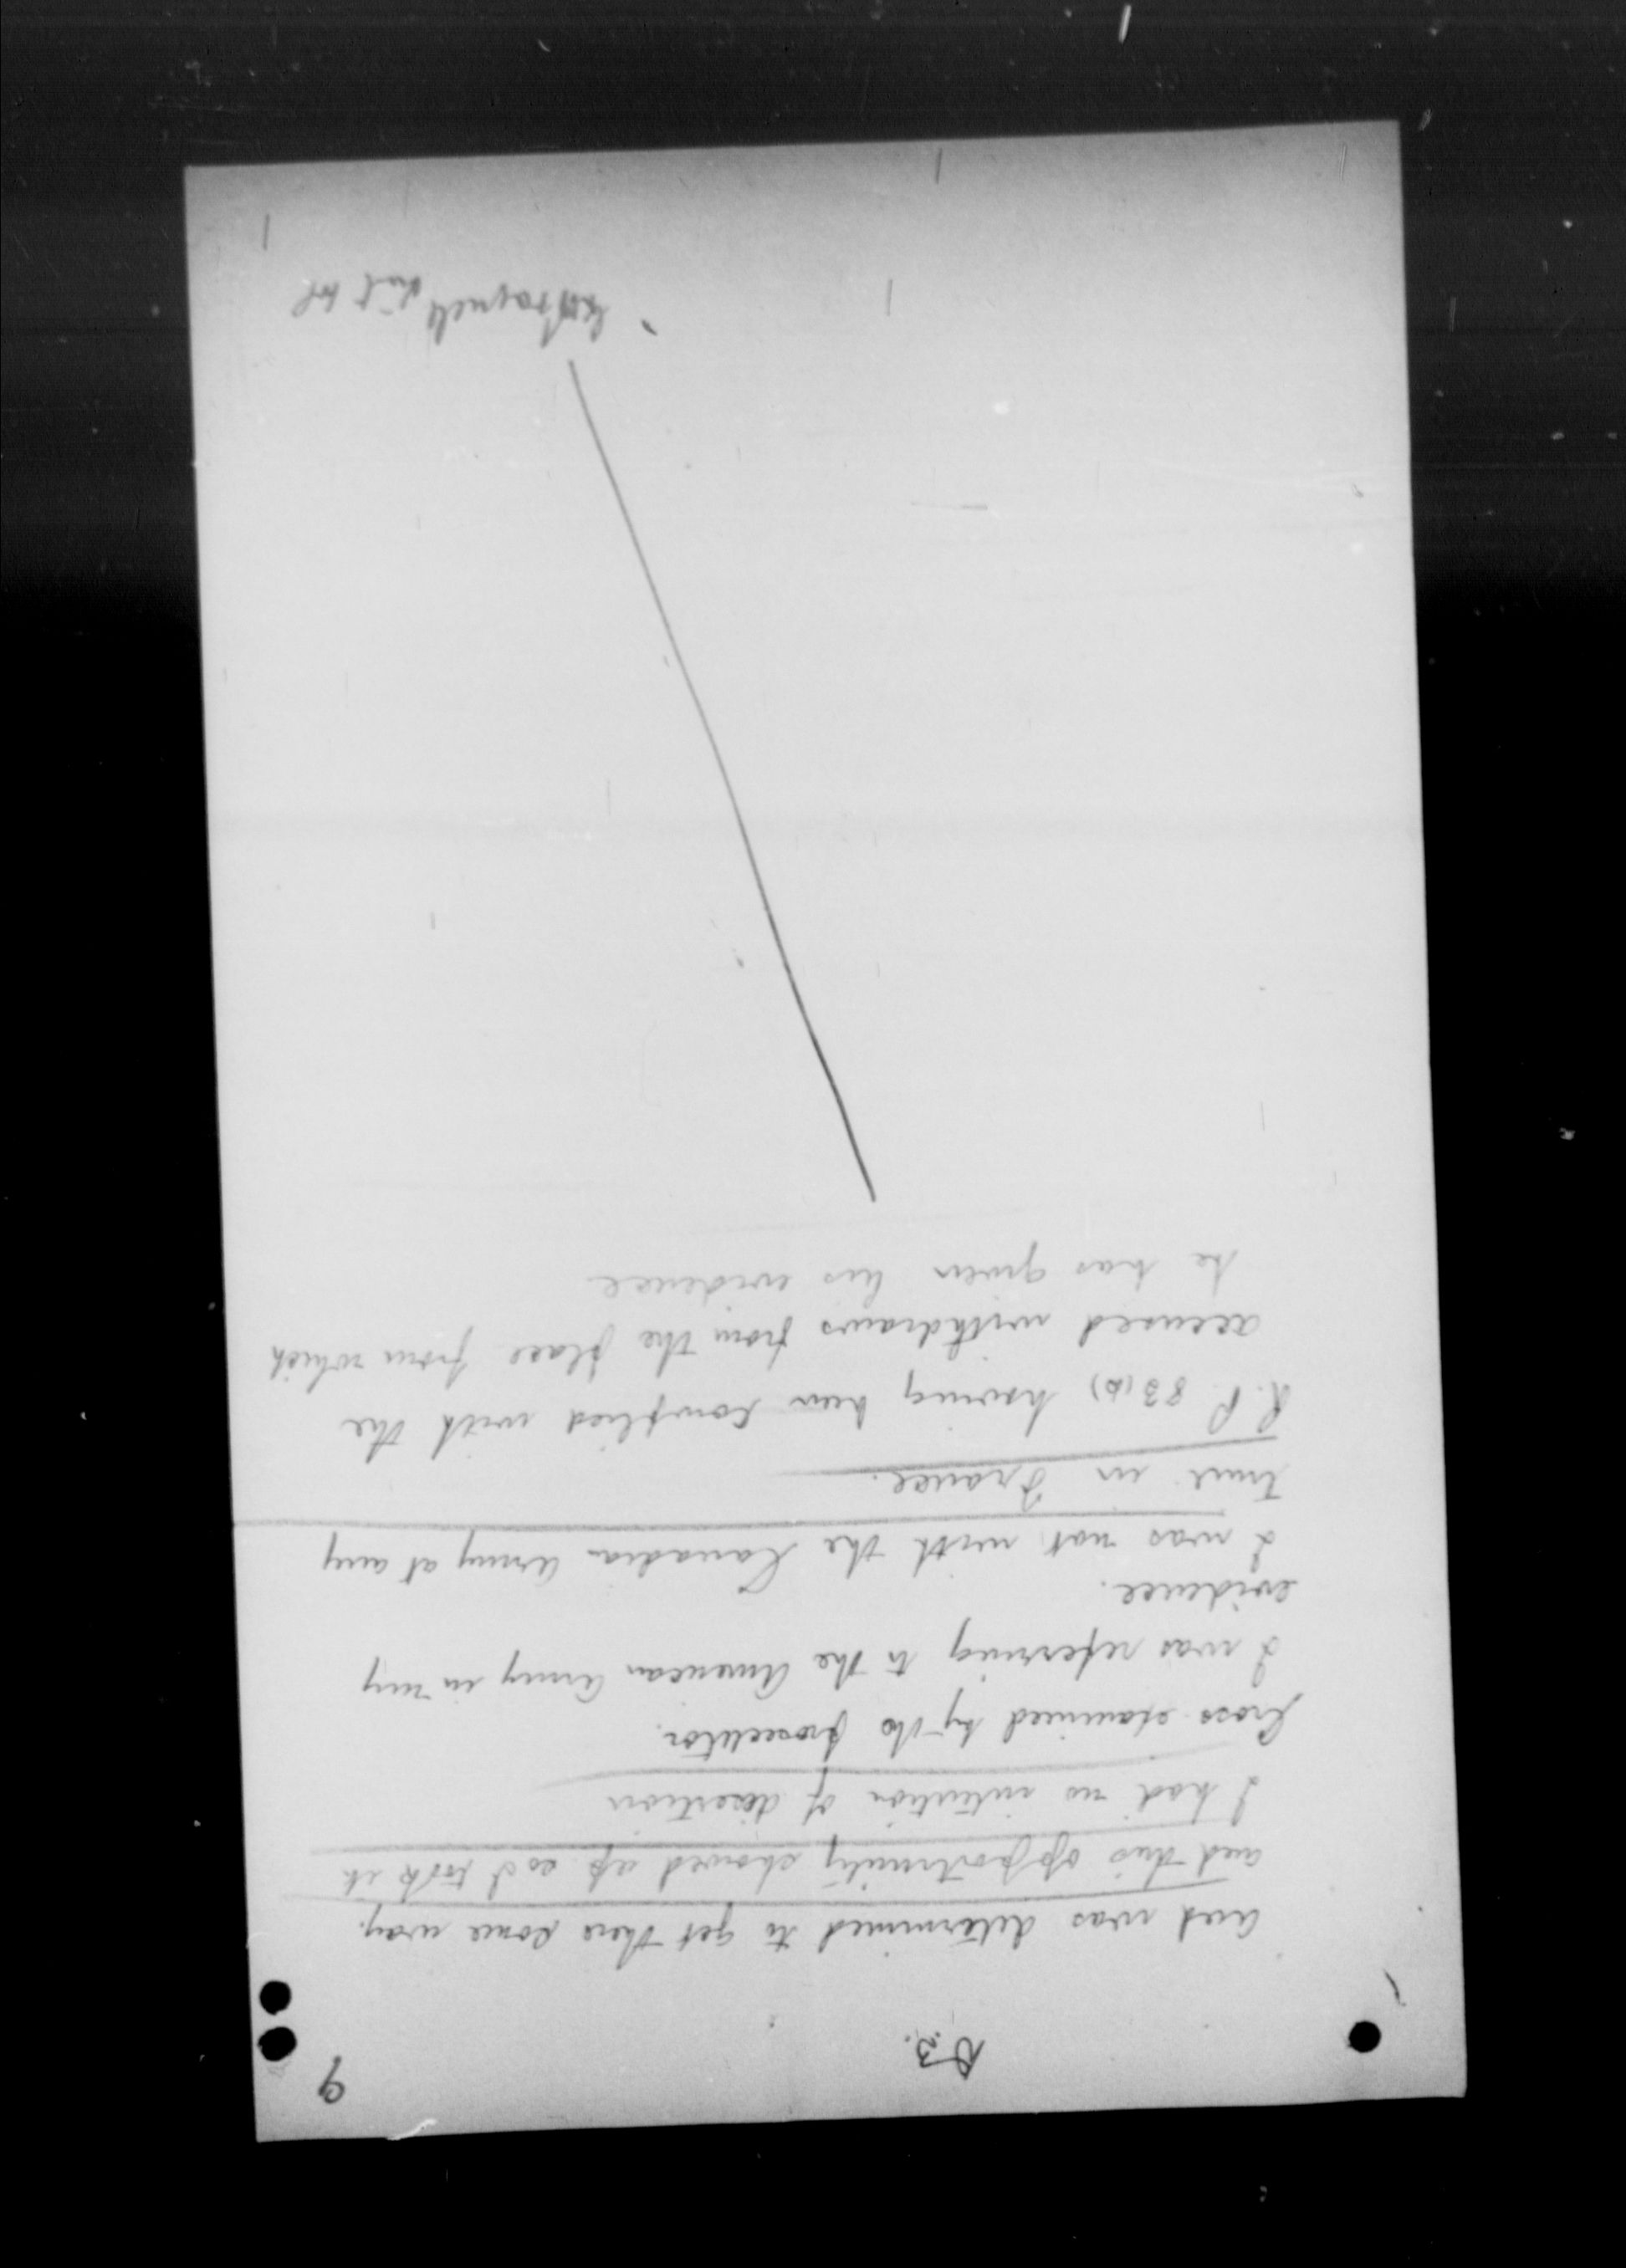 9
D.3.
and was determined to get there some way.
and this opportunity showed up so I took it
I had no intention of desertion
Cross examined by the prosecutor.
I was referring to the American Army in my
evidence.
I was not with the Canadian Army at any
time in France.
R.P. 83(B) having been complied with the
accused withdraws from the place from which
he has given his evidence